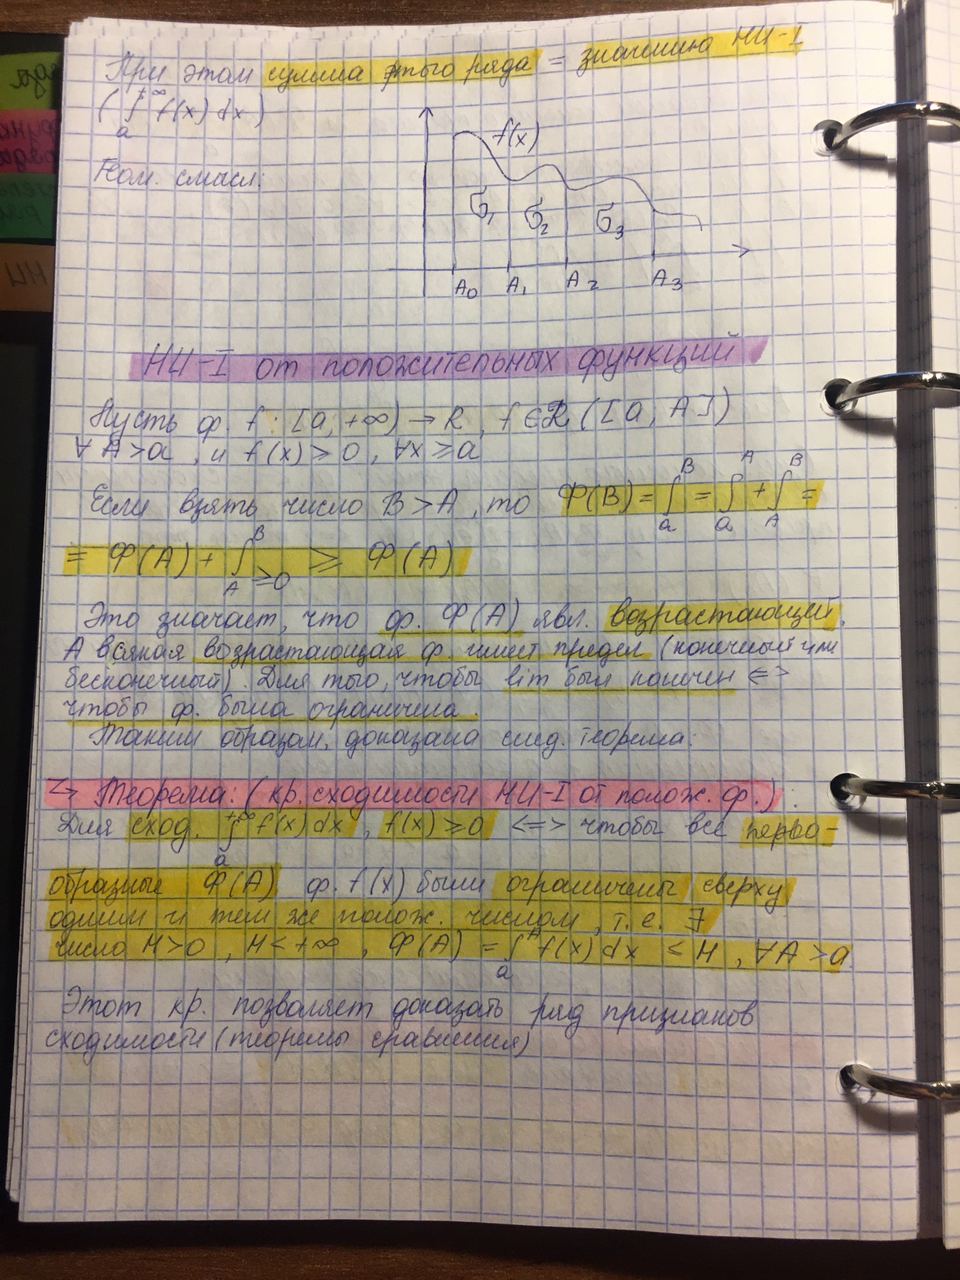 При этом сумма этого ряда = значению НИ-I
( ∫ₐ^{+∞} f(x) dx )
Геом. смысл:
f(x)
σ₁ σ₂ σ₃
A₀ A₁ A₂ A₃
НИ-I от положительных функций
Пусть ф. f : [a, +∞) → R, f ∈ R ([a, A])
∀ A > a, и f(x) ≥ 0, ∀x ≥ a
Если взять число B > A, то Ф(B) = ∫ₐ^B = ∫ₐ^A + ∫_A^B =
= Ф(A) + ∫_A^B ≥0 ≥ Ф(A)
Это значает, что ф. Ф(A) явл. возрастающей.
А всякая возрастающая ф. имеет предел (конечный или
бесконечный). Для того, чтобы lim был конечен <=>
чтобы ф. была ограничена.
Таким образом, доказана след. теорема:
↳ Теорема: (кр. сходимости НИ-I от полож. ф.) :
Для сход. ∫ₐ^{+∞} f(x) dx, f(x) ≥ 0 <=> чтобы все перво-
образные Ф(A) ф. f(x) были ограничены сверху
одним и тем же полож. числом, т.е. ∃
число M > 0, M < +∞, Ф(A) = ∫ₐ^A f(x) dx ≤ M, ∀A > a
Этот кр. позволяет доказать ряд признаков
сходимости (теоремы сравнения)
НИ